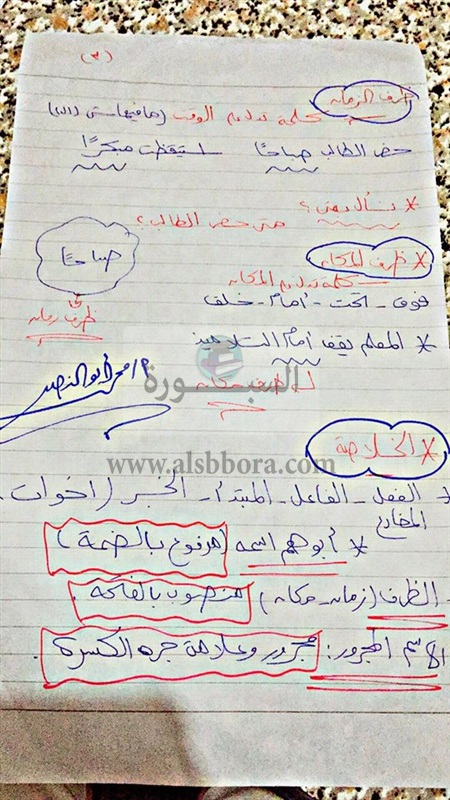 (٣)
ظرف الزمان
كلمة تدل على الوقت (مافيهاش ال)
حضر الطالب صباحًا استيقظت مبكرًا
* نسأل بمتى؟
متى حضر الطالب؟
صباحًا
ظرف زمان
* ظرف المكان
كلمة تدل على المكان
فوق - تحت - أمام - خلف
* المعلم يقف أمام التلاميذ
ظرف مكان
السبورة
www.alsbbora.com
* الخلاصة
* الفعل - الفاعل - المبتدأ - الخبر (اخوات)
المضارع
* أبوهم اسمه (مرفوع بالضمة)
- الظرف (زمان - مكان) منصوب بالفتحة.
الاسم المجرور: مجرور وعلامة جره الكسرة.